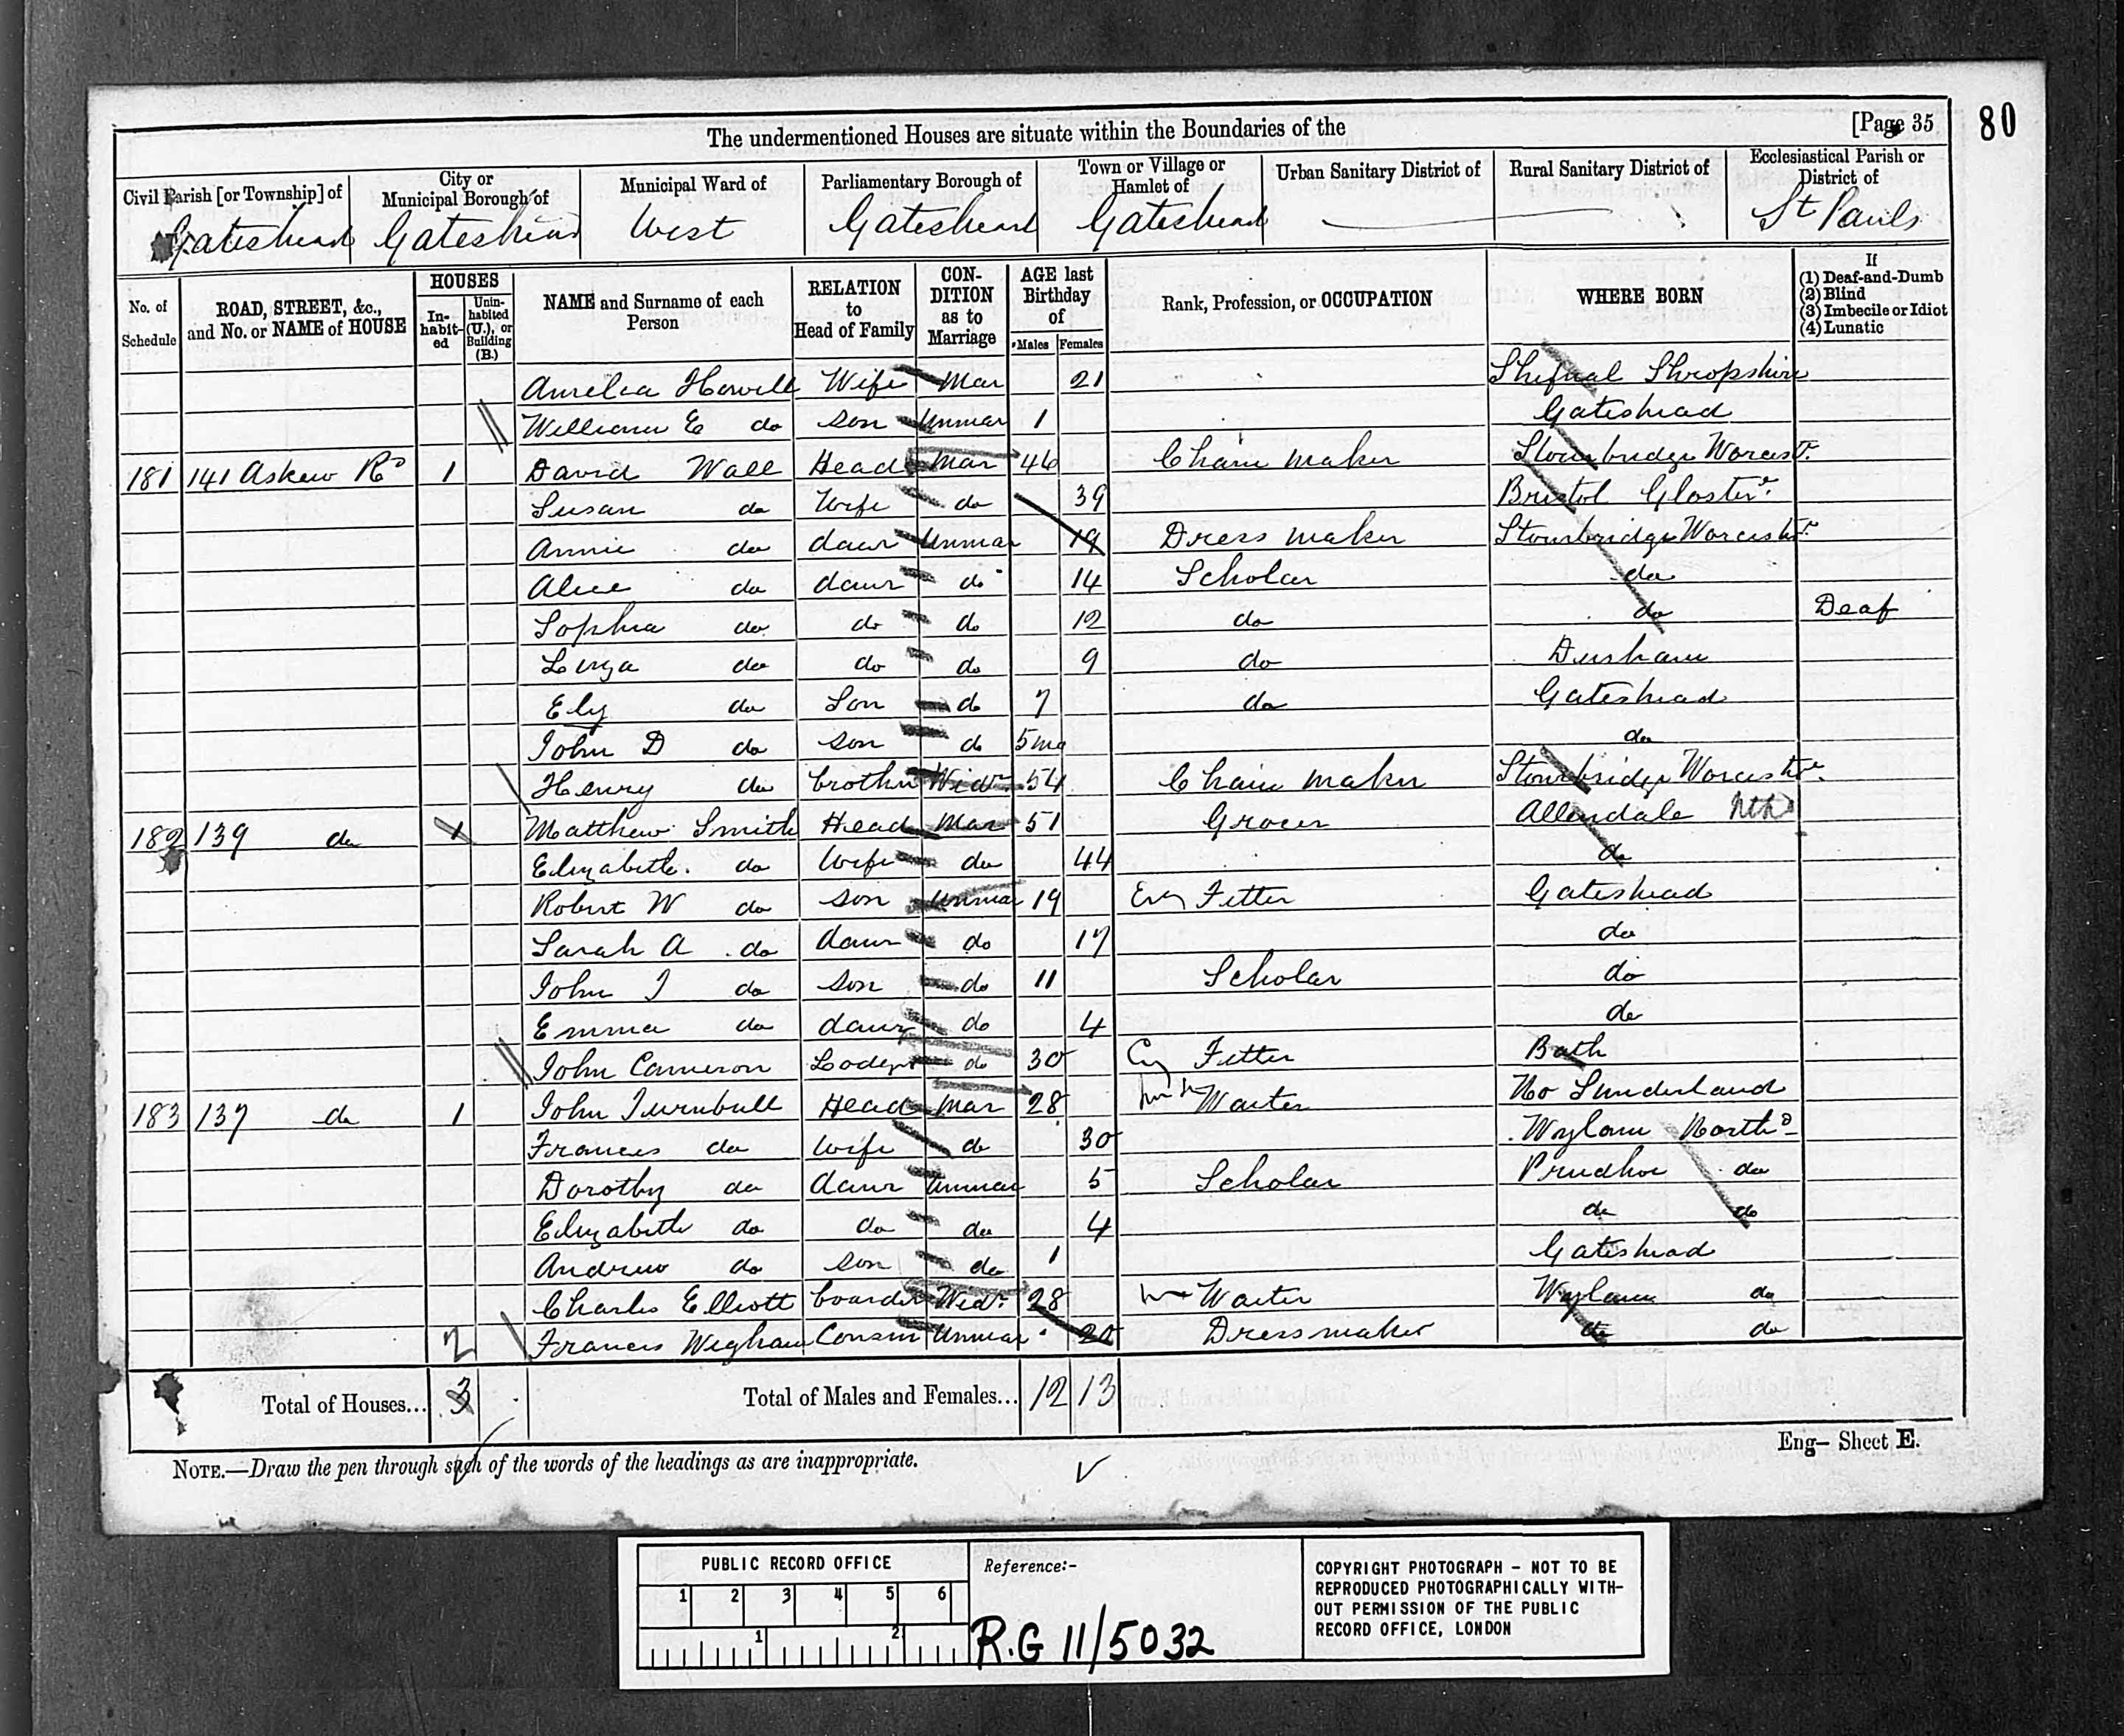 The undermentioned Houses are situate within the Boundaries of the [Page 35 80
Civil Parish [or Township] of City or Municipal Borough of Municipal Ward of Parliamentary Borough of Town or Village or Hamlet of Urban Sanitary District of Rural Sanitary District of Ecclesiastical Parish or District of
Gateshead Gateshead West Gateshead Gateshead St Pauls
No. of Schedule ROAD, STREET, &c., and No. or NAME of HOUSE HOUSES In-habit-ed Unin-habited (U.), or Building (B.) NAME and Surname of each Person RELATION to Head of Family CON-DITION as to Marriage AGE last Birthday of Males Females Rank, Profession, or OCCUPATION WHERE BORN If (1) Deaf-and-Dumb (2) Blind (3) Imbecile or Idiot (4) Lunatic
Amelia Howell Wife Mar 21 Shifnal Shropshire
William E do son Unmar 1 Gateshead
181 141 Askew Rd 1 David Wall Head Mar 46 Chain maker Stourbridge Worcestr.
Susan do Wife do 39 Bristol Glosterr.
Annie do daur Unmar 19 Dress maker Stourbridge Worcestr.
Alice do daur do 14 Scholar do
Sophia do do do 12 do do Deaf
Liza do do do 9 do Durham
Ely do Son do 7 do Gateshead
John D do son do 5mo do
Henry do brother Widr 54 Chain maker Stourbridge Worcestr.
182 139 do 1 Matthew Smith Head Mar 51 Grocer Allendale Nthd
Elizabeth. do Wife do 44 do
Robert W do son Unmar 19 Eng Fitter Gateshead
Sarah A do daur do 17 do
John J do son do 11 Scholar do
Emma do daur do 4 do
John Cameron Lodger do 30 Eng Fitter Bath
183 137 do 1 John Turnbull Head Mar 28 Waiter No Sunderland
Frances do Wife do 30 Wylam Northd
Dorothy do daur Unmar 5 Scholar Prudhoe do
Elizabeth do do do 4 do do
Andrew do son do 1 Gateshead
Charles Elliott boarder Widr. 28 Waiter Wylam do
2 Frances Wigham Cousin Unmar 20 Dressmaker do do
Total of Houses... 3 Total of Males and Females... 12 13
Eng– Sheet E.
NOTE.—Draw the pen through such of the words of the headings as are inappropriate.
PUBLIC RECORD OFFICE
1 2 3 4 5 6
1 2
Reference:-
R.G 11/5032
COPYRIGHT PHOTOGRAPH - NOT TO BE
REPRODUCED PHOTOGRAPHICALLY WITH-
OUT PERMISSION OF THE PUBLIC
RECORD OFFICE, LONDON